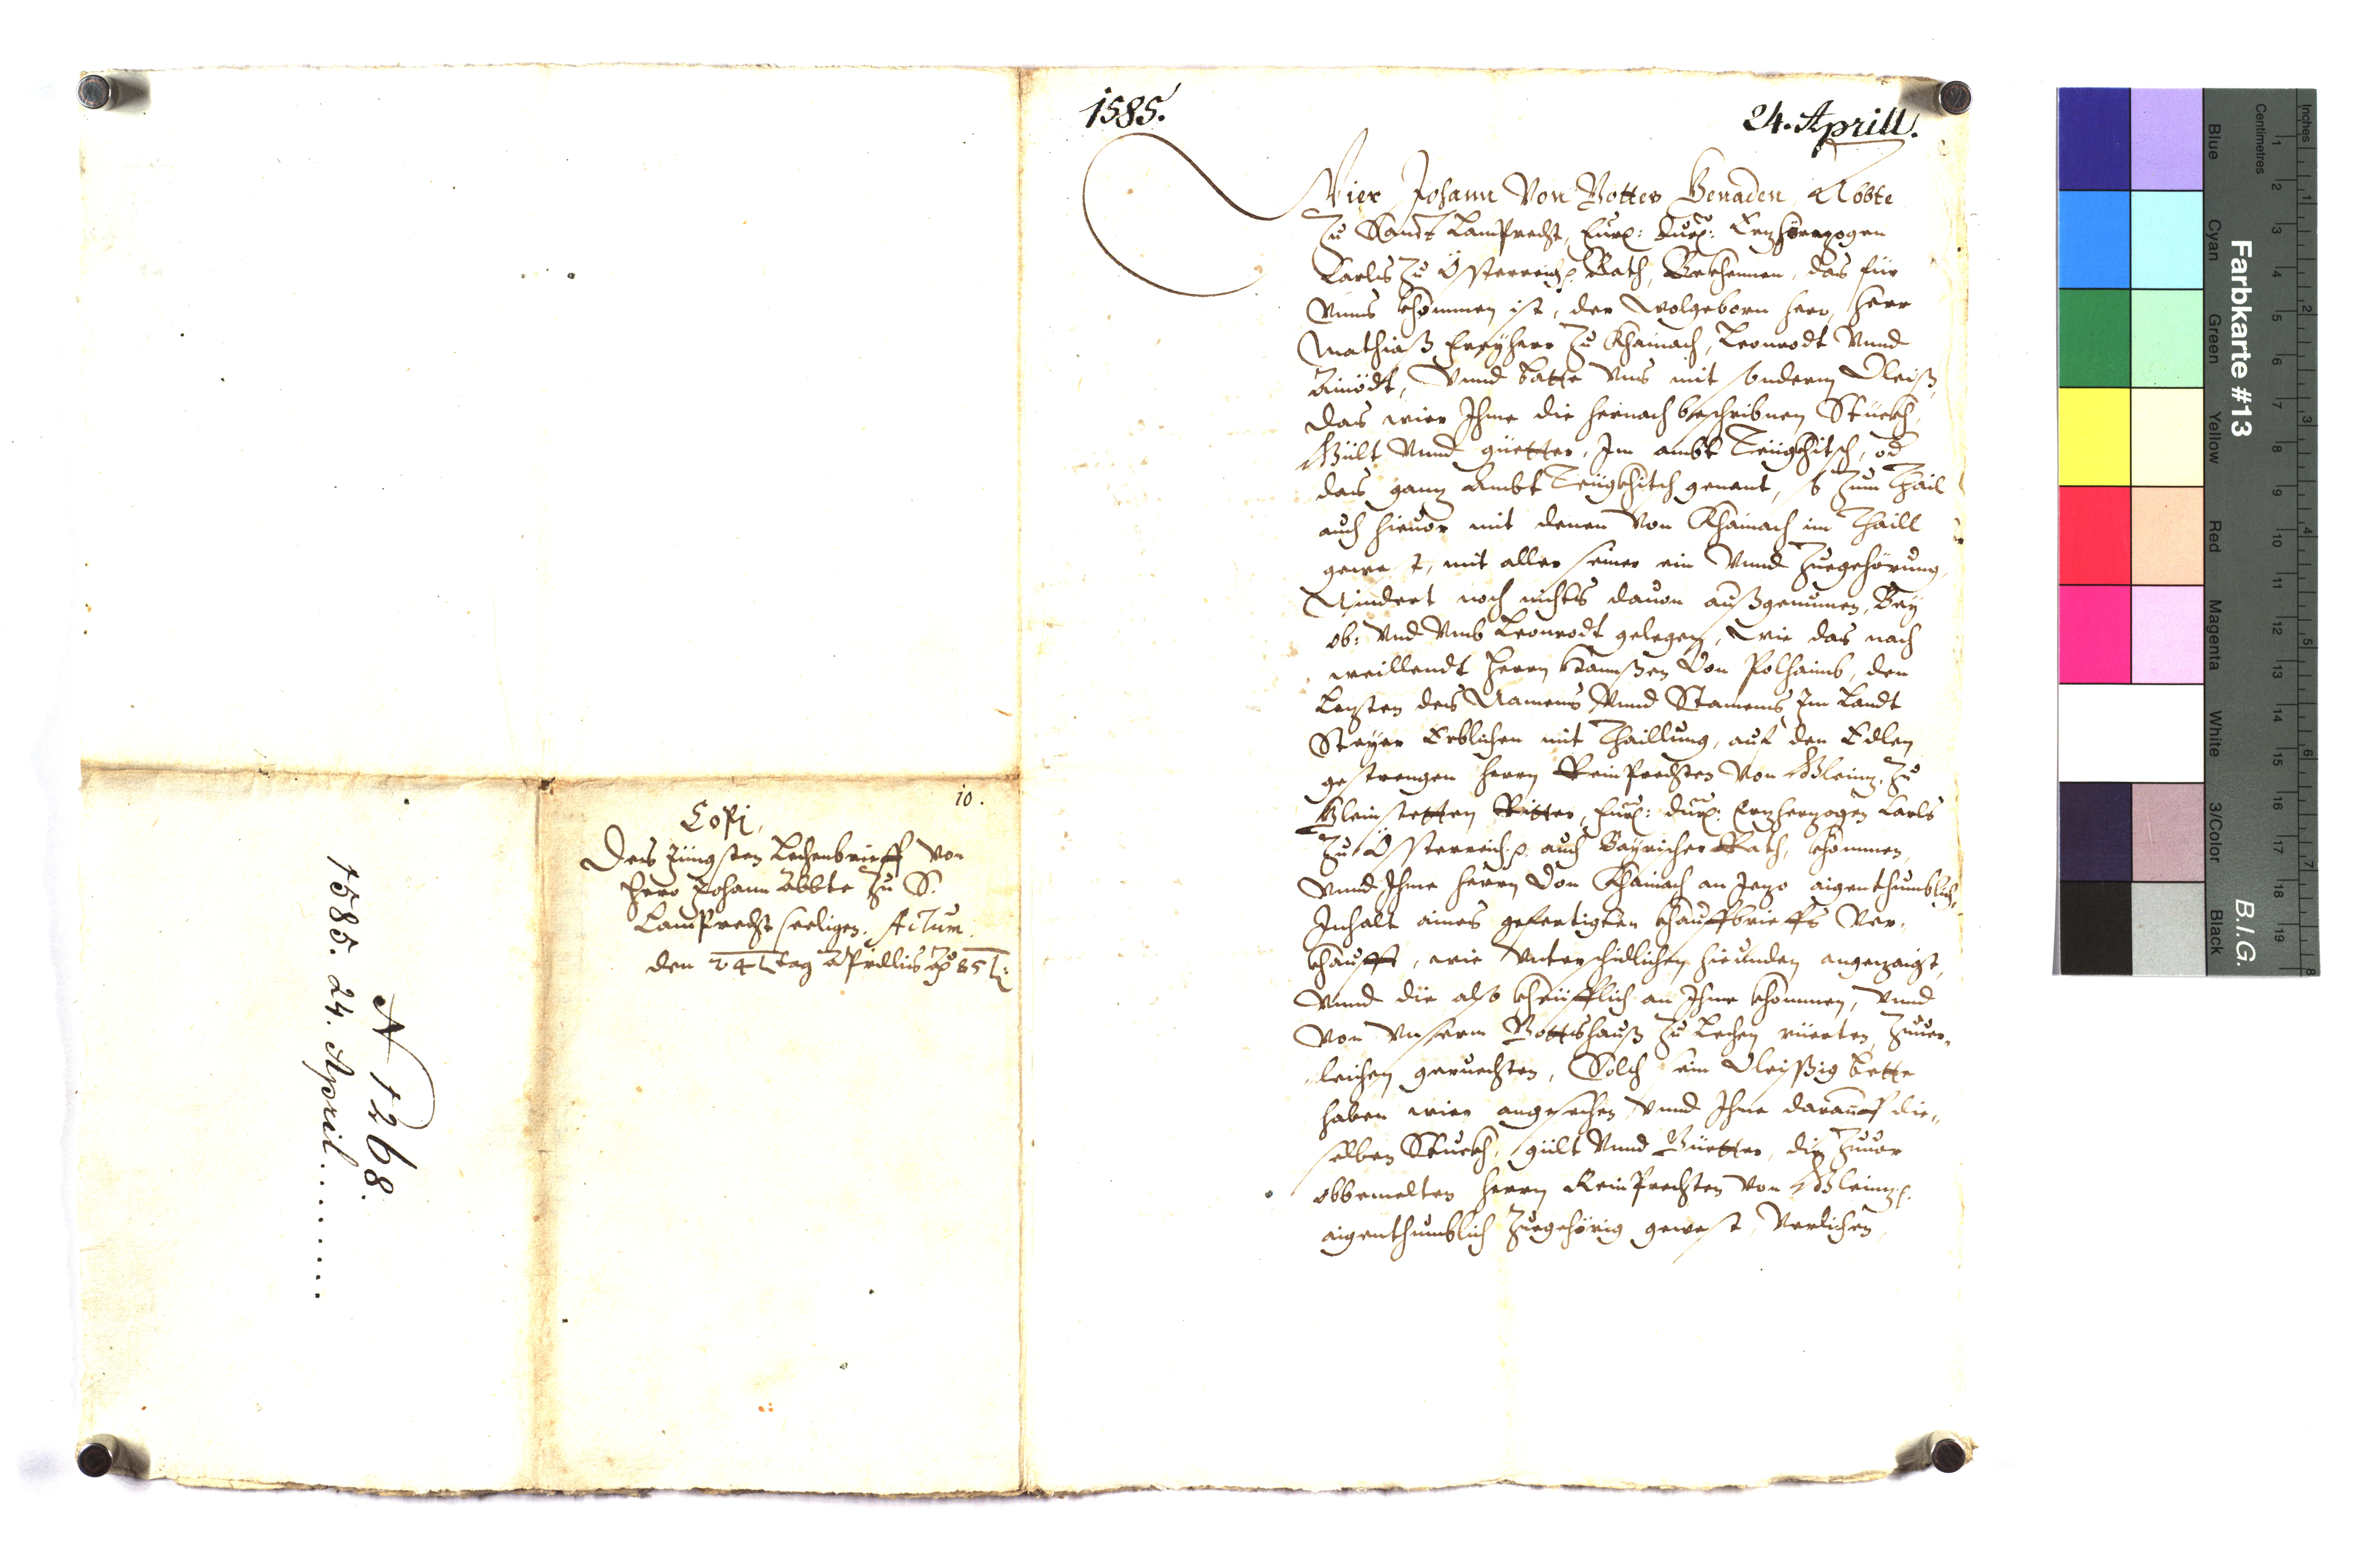 1585.
24. Aprill.
Wier Johann Von Gottes Genaden Abbte
Zu Sandt Lamprecht, Fürl: Durl: Erzherzogen
Carls Zu Österreich p. Rath, Bekhennen, das für
Vnns khommen ist, der Wolgeborn herr, Herr
Mathiaß Freyherr Zu Khainach, Leonrodt Vnnd
Ainödt, Vnnd batte Vns mit sonderm Vleiß,
das wier Ihme die hernach beschribnen Stückh,
Gült Vnnd güetter, Im ambt od
das ganz Ambt genant, so Zum Thail
auch hieuor mit denen Von Khainach im Thaill
gewest, mit aller seiner ein Vnnd Zuegehörung,
Nindert noch nichts dauon außgenumen, Bey
ob: Vnd Vmb Leonrodt gelegen, Wie das nach
weillendt Herrn Von Polhaimb, den
Lezten des Namens Vnnd Stamens Im Landt
Steyer Erblichen mit Thaillung, auf den Edlen
gestrengen Herrn Reinprechten Von Gleinz, Zu
Gleinstetten Ritter, Fürl: Durl: Erzherzogen Carls
Zu Österreich p. auch Bayrischer Rath, khommen,
Vnnd Ihme Herrn Von Khainach an Jezo aigenthumblich,
Inhalt aines gefertigten khauffbrieffs Ver-
khaufft, wie Vnterschidlichen hieunden angezaigt,
Vnnd die also kheüfflich an Ihme khommen, Vnnd
Von Vnserm Gottshauß Zu Lechen rüerten, Zuuer-
leichen geruechten, Solch sein Vleissig bette
haben wier angesechen Vnnd Ihme darauf die-
selben Stuckh, gült Vnnd Güetter, die Zuuor
obbemelten Herrn Reinprechten Von Gleinz p.
aigenthumblich Zuegehörig gewest, Verlichen,
10.
Copi,
Des Jüngsten Lechenbrieff Von
Herr Johann Abbte Zu S.
Lamprecht seeligen. Actum.
den 24 tag Aprillis Ao 85
N 1268.
1585. 24. April........